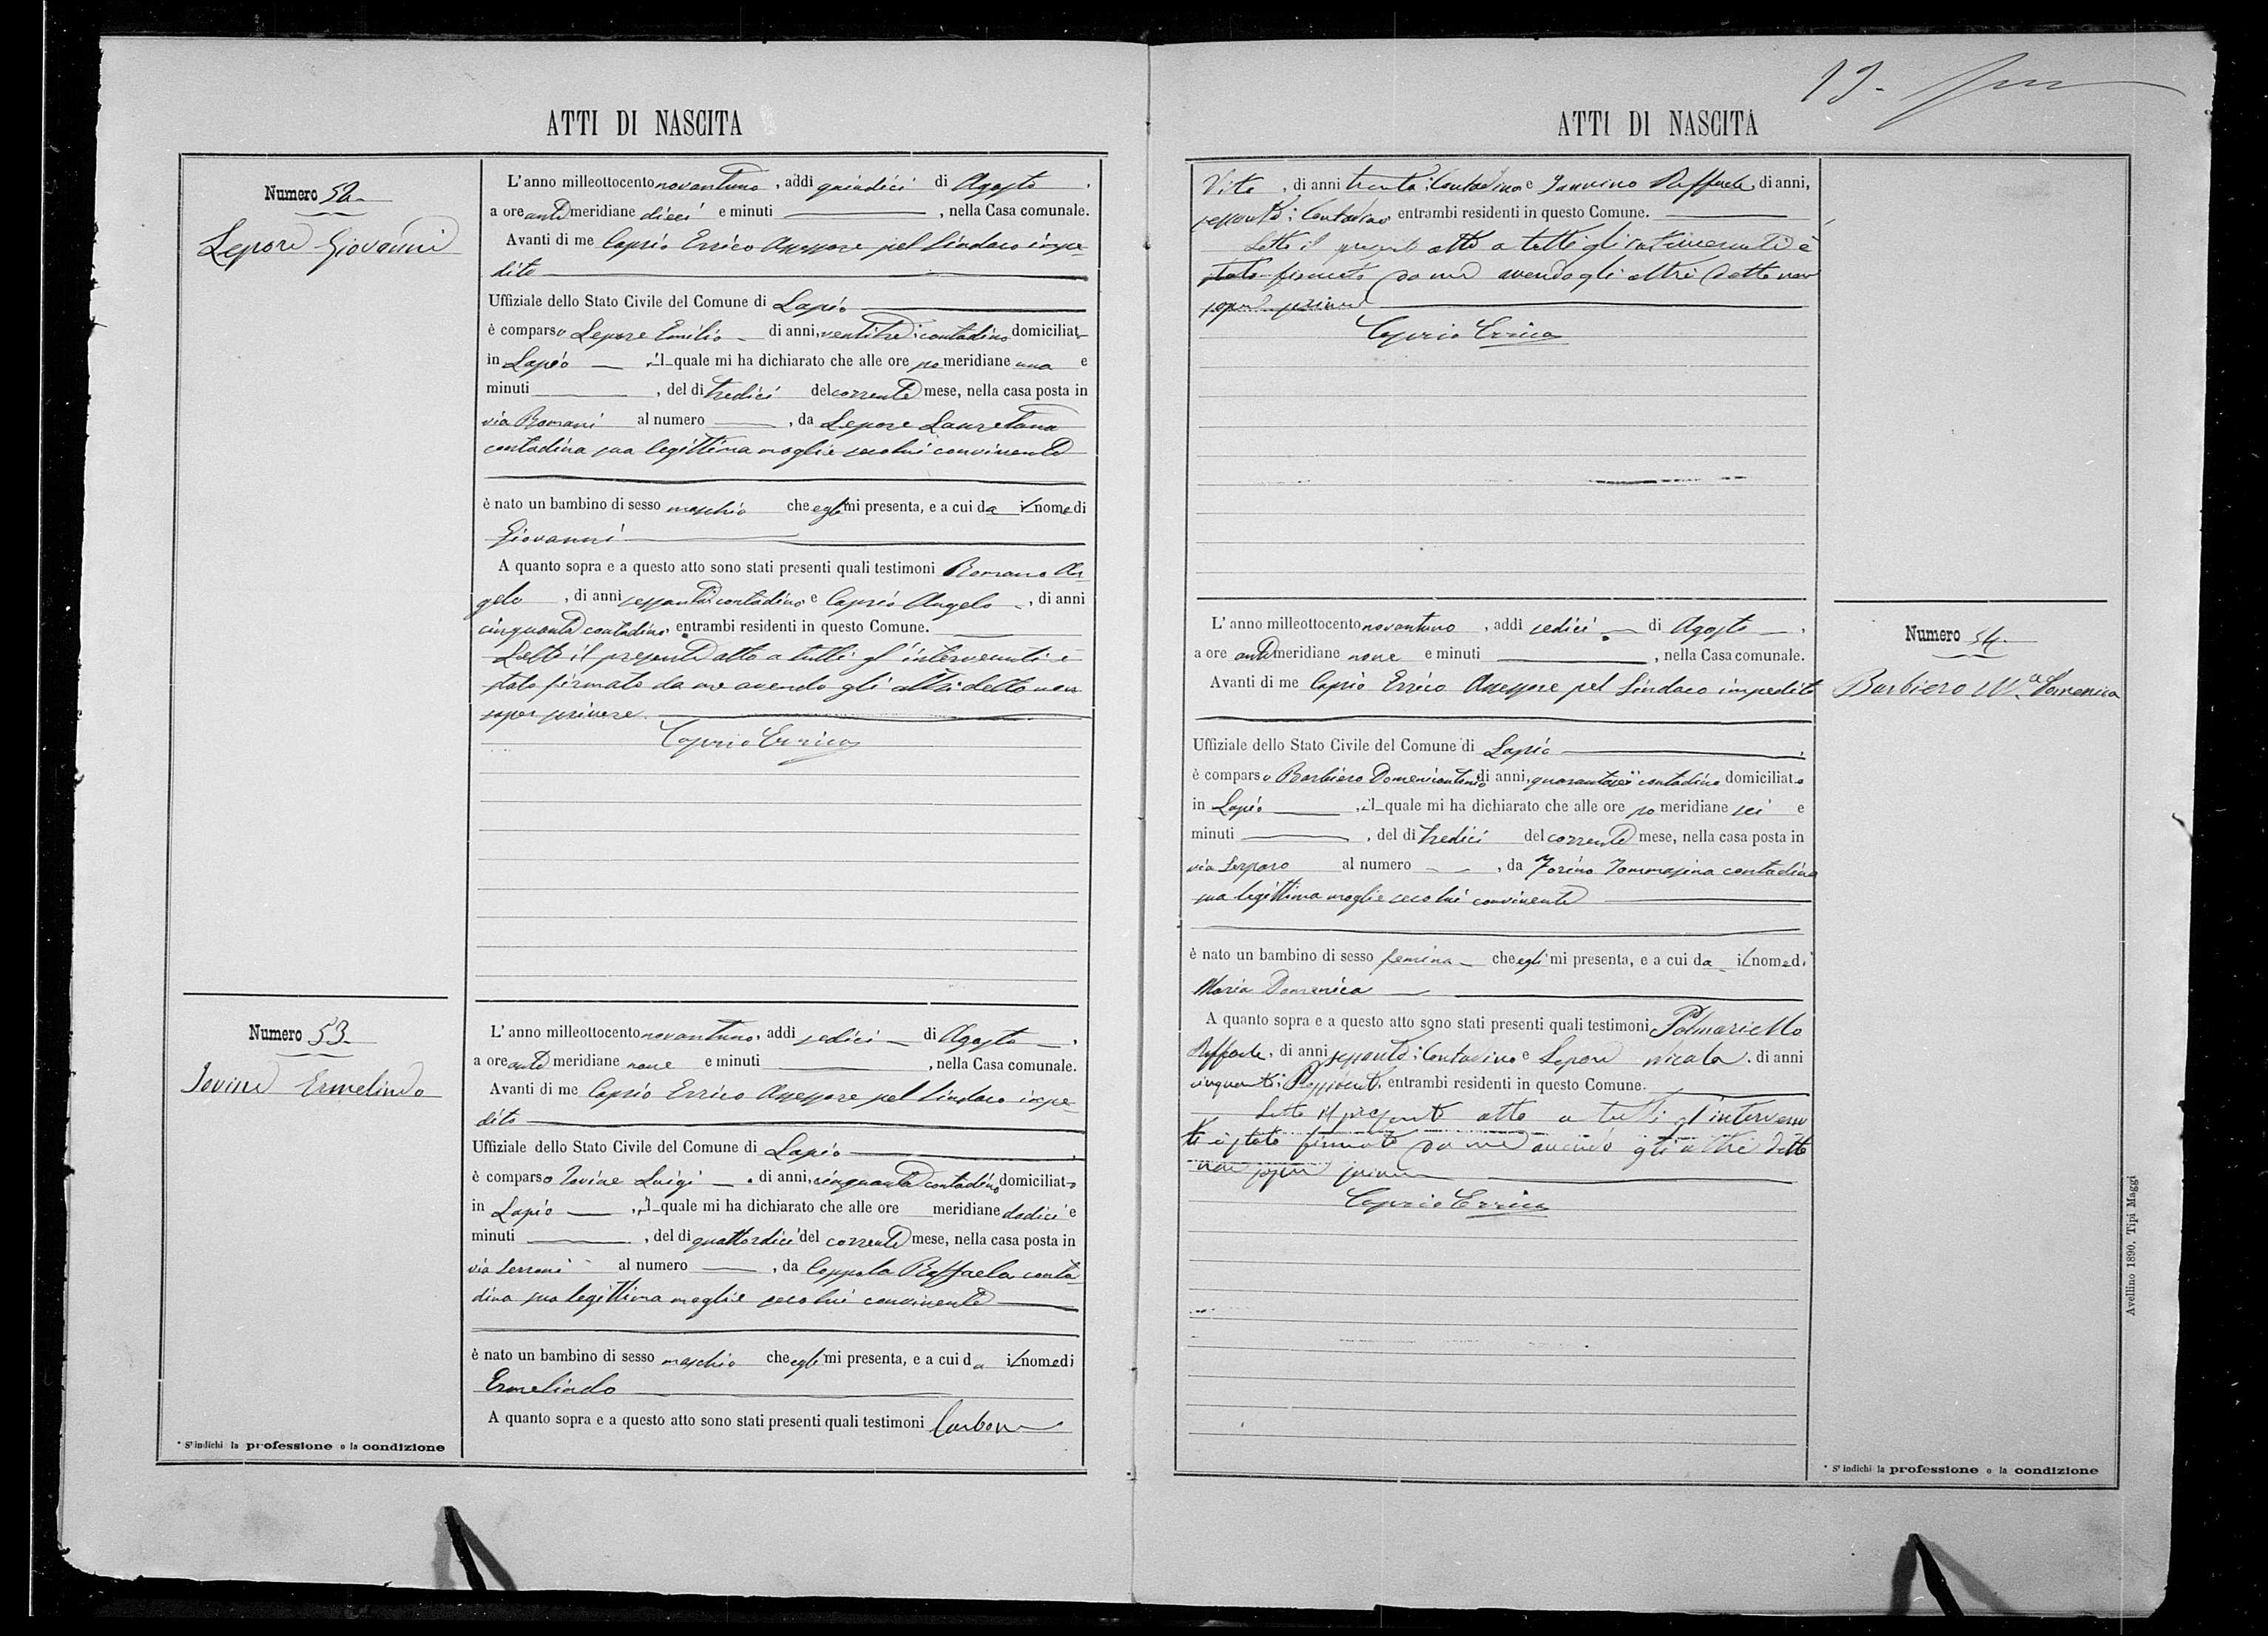 ATTI DI NASCITA
Numero 52
Lepore Giovanni
L'anno milleottocento novantuno, addi quindici di Agosto,
a ore antimeridiane dieci e minuti , nella Casa comunale.
Avanti di me Caprio Errico Assessore pel Sindaco impe-
dito
Uffiziale dello Stato Civile del Comune di Lapio
è comparso Lepore Emilio di anni, ventitre contadino domiciliat
in Lapio , il quale mi ha dichiarato che alle ore pomeridiane una e
minuti , del di tredici del corrente mese, nella casa posta in
via Romani al numero , da Lepore Lauretana
contadina sua legittima moglie seco lui convivente
è nato un bambino di sesso maschio che egli mi presenta, e a cui da il nome di
Giovanni
A quanto sopra e a questo atto sono stati presenti quali testimoni Romano An
gelo , di anni sessanta contadino e Caprio Angelo , di anni
cinquanta contadino, entrambi residenti in questo Comune.
Letto il presente atto a tutti gl'intervenuti è
stato firmato da me avendo gli altri detto non
saper scrivere
Caprio Errico
Numero 53
Iovine Ermelindo
L'anno milleottocento novantuno, addi sedici di Agosto,
a ore antimeridiane nove e minuti , nella Casa comunale.
Avanti di me Caprio Errico Assessore pel Sindaco impe-
dito
Uffiziale dello Stato Civile del Comune di Lapio
è comparso Iovine Luigi . di anni, cinquanta contadino domiciliato
in Lapio , il quale mi ha dichiarato che alle ore meridiane dodici e
minuti , del di quattordici del corrente mese, nella casa posta in
via Serroni al numero , da Coppola Raffaela conta
dina sua legittima moglie seco lui convivente
è nato un bambino di sesso maschio che egli mi presenta, e a cui da il nome di
Ermelindo
A quanto sopra e a questo atto sono stati presenti quali testimoni Carbone
* S'indichi la professione o la condizione
ATTI DI NASCITA
Vito , di anni trenta: Contadino e Iannino Raffaele, di anni,
sessanta: Contadino entrambi residenti in questo Comune.
Letto il presente atto a tutti gli intervenuti è
stato firmato da me avendo gli altri detto non
saper scrivere
Caprio Errico
L'anno milleottocento novantuno , addi sedici di Agosto ,
a ore antimeridiane nove e minuti , nella Casa comunale.
Avanti di me Caprio Errico Assessore pel Sindaco impedito
Numero 54
Barbiero Mª Domenica
Uffiziale dello Stato Civile del Comune di Lapio
è comparso Barbiero Domenicantonio di anni, quarantasei contadino domiciliato
in Lapio , il quale mi ha dichiarato che alle ore pomeridiane sei e
minuti , del di tredici del corrente mese, nella casa posta in
via al numero , da Forino Tommasina contadina
sua legittima moglie seco lui convivente
è nato un bambino di sesso femina che egli mi presenta, e a cui da il nome di
Maria Domenica
A quanto sopra e a questo atto sono stati presenti quali testimoni Palmariello
Raffaele, di anni sessanta: Contadino e Lepore Nicola . di anni
cinquanta: entrambi residenti in questo Comune.
Letto il presente atto a tutti gl'intervenu
ti è stato firmato da me avendo gli altri detto
non saper scrivere
Caprio Errico
* S'indichi la professione o la condizione
Avellino 1890, Tipi Maggi